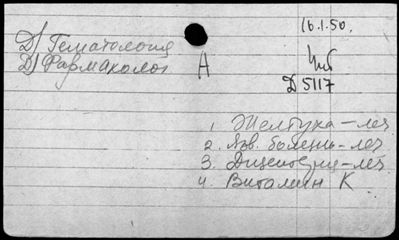 16.1.50.
Д) Гематология
Д) Фармаколог
А
Д 5117
1. Желтуха – леч
2. Язв. болезнь – леч
3. Дизентерия – леч
4. Витамин К